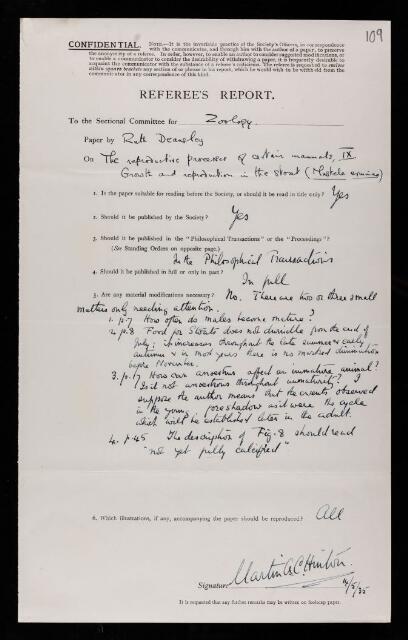 109
CONFIDENTIAL. NOTE.—It is the invariable practice of the Society's Officers, in correspondence
with the communicator, and through him with the author of a paper, to preserve
the anonymity of a referee. In order, however, to enable an author to consider suggested modifications, or
to enable a communicator to consider the desirability of withdrawing a paper, it is frequently desirable to
acquaint the communicator with the substance of a referee's criticisms. The referee is requested to enclose
within square brackets any section of or phrase in his report, which he would wish to be withheld from the
communicator in any correspondence of this kind.
REFEREE'S REPORT.
To the Sectional Committee for Zoology.
Paper by Ruth Deanesly
On The reproductive processes of certain mammals, IX
Growth and reproduction in the stoat (Mustela erminea)
1. Is the paper suitable for reading before the Society, or should it be read in title only? Yes
2. Should it be published by the Society? Yes
3. Should it be published in the "Philosophical Transactions" or the "Proceedings"?
(See Standing Orders on opposite page.)
In the Philosophical Transactions
4. Should it be published in full or only in part?
In full
5. Are any material modifications necessary? No. There are two or three small
matters only needing attention.
1. p.7 How often do males become mature?
2. p.8 Food for Stoats does not dwindle from the end of
July; it increases throughout the late summer & early
autumn & in most years there is no marked diminution
before November.
3. p.17 How can anoestrus affect an immature animal?
Is it not anoestrous throughout immaturity? I
suppose the author means that the events observed
in the young, foreshadow as it were the cycle
which will be established later in the adult.
4. p.45 The description of Fig. 8 should read
"not yet fully calcified"
6. Which illustrations, if any, accompanying the paper should be reproduced? All
Signature Martin A. C. Hinton.
14/5/35
It is requested that any further remarks may be written on foolscap paper.